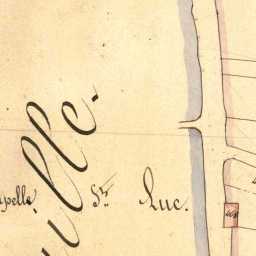 ille.
pelle St Luc.